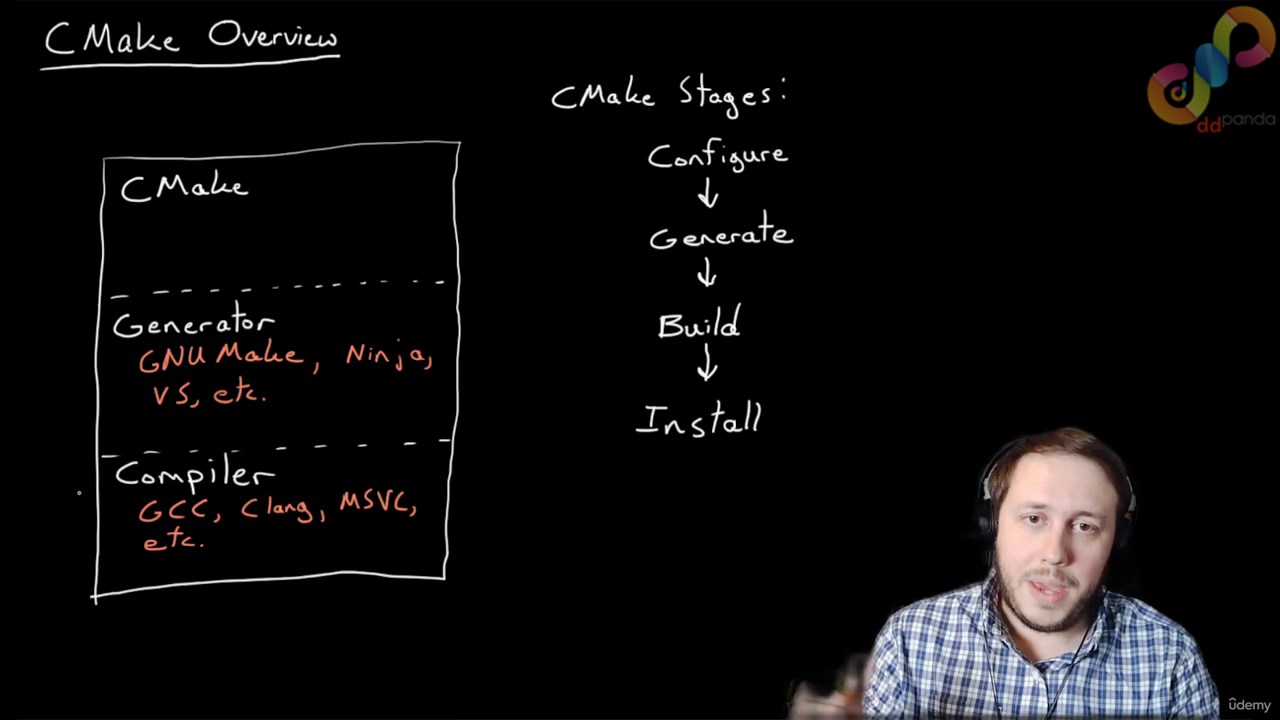 CMake Overview
CMake
Generator
GNU Make, Ninja,
VS, etc.
Compiler
GCC, Clang, MSVC,
etc.
CMake Stages:
Configure
Generate
Build
Install
ddpanda
ûdemy